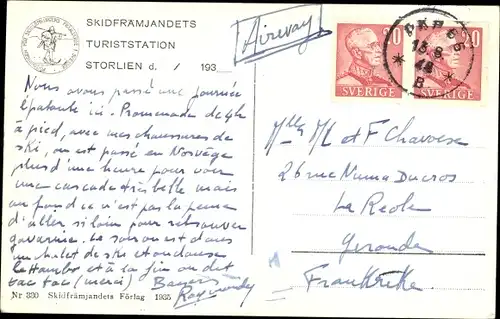 SKIDFRÄMJANDETS
TURISTSTATION
STORLIEN d. / 193
Airway
20
20
SVERIGE
SVERIGE
13 8
48
B
Nous avons passé une journée
épatante ici. Promenade de 4h
à pied, avec mes chaussures de
ski, on est passé en Norvège
plus d'une heure pour voir
une cascade très belle mais
au fond ce n'est pas la peine
d'aller si loin pour retrouver
gavarnie. Le soir on est dans
un chalet de ski et on danse
le Hambo et à la fin on dit
tac tac (merci) Baisers
Raymonde
Mlles M.L et F Chavoix
26 rue Numa Ducros
La Réole
Gironde
Frankrike
Nr 330 Skidfrämjandets Förlag 1935